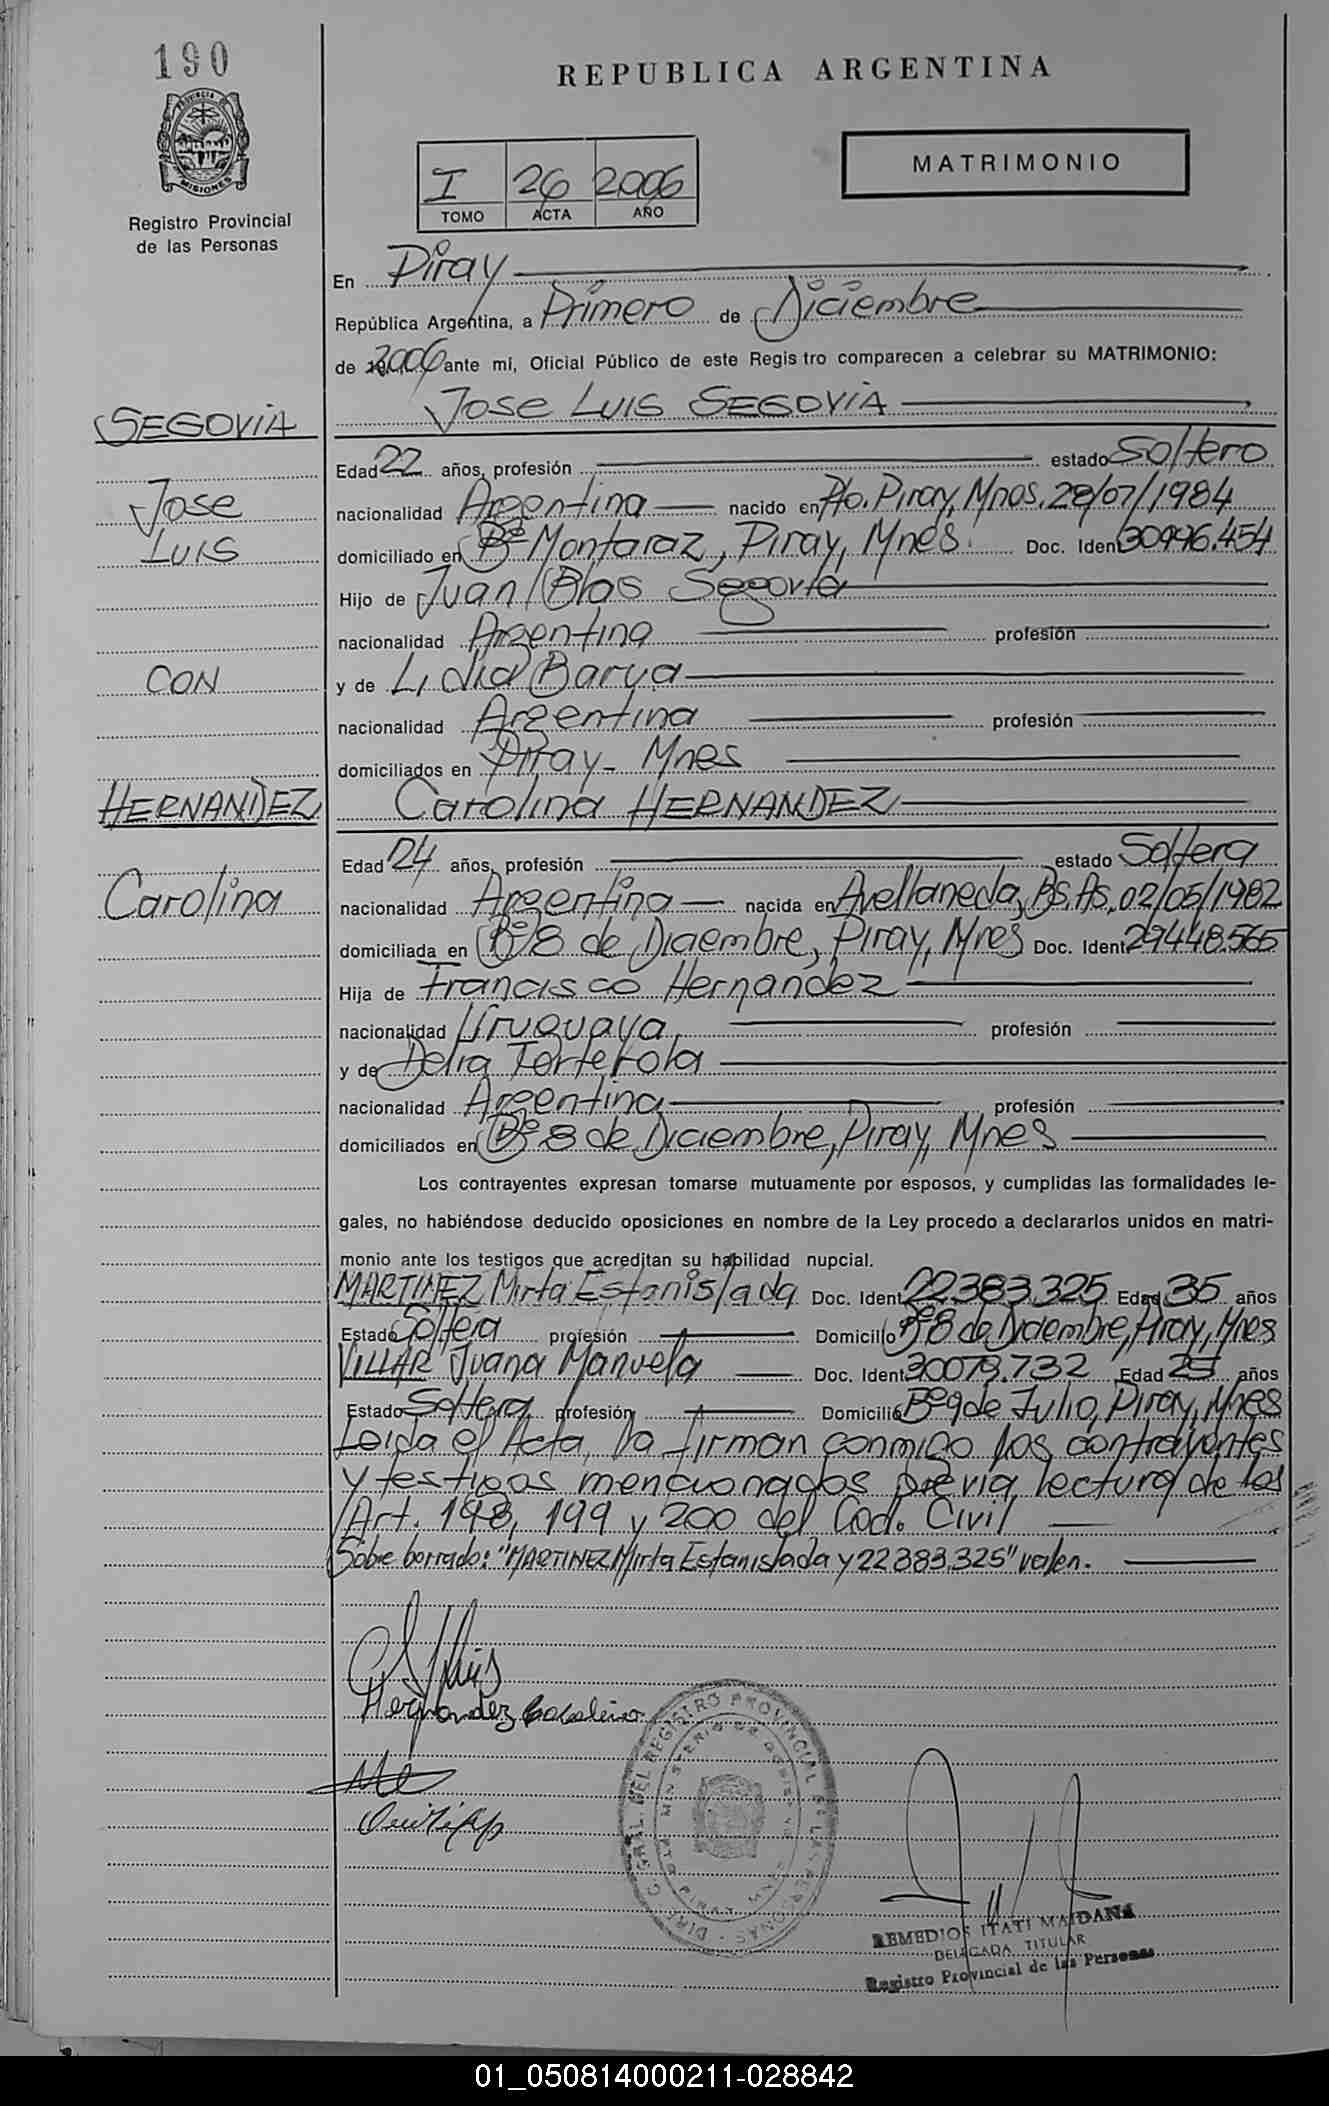 190
PROVINCIA DE
MISIONES
Registro Provincial
de las Personas
REPUBLICA ARGENTINA
I 26 2006
TOMO ACTA AÑO
MATRIMONIO
En Piray
República Argentina, a Primero de Diciembre
de 2006 ante mí, Oficial Público de este Registro comparecen a celebrar su MATRIMONIO:
Jose Luis SEGOVIA
SEGOVIA
Jose
Luis
CON
HERNANDEZ
Carolina
Edad 22 años, profesión estado Soltero
nacionalidad Argentina nacido en Pto. Piray, Mnes. 28/07/1984
domiciliado en Bº Montaraz, Piray, Mnes. Doc. Ident
Hijo de Juan Blas Segovia
nacionalidad Argentina profesión
y de Lidia Barua
nacionalidad Argentina profesión
domiciliados en Piray - Mnes
Carolina HERNANDEZ
Edad 24 años, profesión estado Soltera
nacionalidad Argentina nacida en Avellaneda, Bs. As. 02/05/1982
domiciliada en Bº 8 de Diciembre, Piray, Mnes Doc. Ident 29448.565
Hija de Francisco Hernandez
nacionalidad Uruguaya profesión
y de Delia Torterola
nacionalidad Argentina profesión
domiciliados en Bº 8 de Diciembre, Piray, Mnes
Los contrayentes expresan tomarse mutuamente por esposos, y cumplidas las formalidades le-
gales, no habiéndose deducido oposiciones en nombre de la Ley procedo a declararlos unidos en matri-
monio ante los testigos que acreditan su habilidad nupcial.
MARTINEZ Mirta Estanislada Doc. Ident 22383.325 Edad 35 años
Estado Soltera profesión Domicilio Bº 8 de Diciembre, Piray, Mnes
VILLAR Juana Manuela Doc. Ident 30079.732 Edad años
Estado Soltera profesión Domicilio Bº 9 de Julio, Piray, Mnes
Leida el Acta, la firman conmigo los contrayentes
y testigos mencionados previa lectura de los
Art. 198, 199 y 200 del Cod. Civil
Sobre borrado: "MARTINEZ Mirta Estanislada y 22383.325" valen.
Luis
Hernandez Carolina
DIREC. GRAL. DEL REGISTRO PROVINCIAL DE LAS PERSONAS
MINISTERIO DE GOBIERNO
REMEDIOS ITATI MAIDANA
DELEGADA TITULAR
Registro Provincial de las Personas
01_050814000211-028842